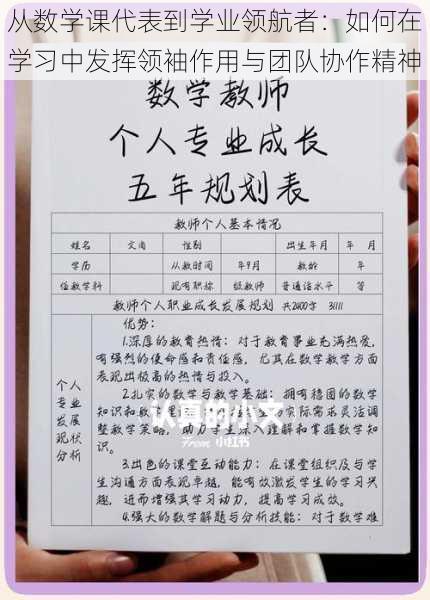 从数学课代表到学业领航者：如何在
学习中发挥领袖作用与团队协作精神
数学教师
个人专业成长
五年规划表
教师个人基本情况
姓名 文南 性别 出生年月 年 月
学历 从教时间 年9月 教龄 年
任教学科 现有职称 级教师 普通话水平 等
教师个人职业成长发展规划 共2400字
个人专业发展现状分析
优势：
1.深厚的教育热情：对于教育事业充满热爱，
有强烈的使命感和责任感，尤其在数学教学方面
表现出极高的热情与投入。
2.扎实的数学与教学基础：拥有稳固的数学
知识和教 实际需求灵活调
整教学策略，助力学生深入理解和掌握数学知
识。
3.出色的课堂互动能力：在课堂组织及与学
生沟通方面表现卓越，能有效激发学生的学习兴
趣，进而增强其学习动力，提高学习成效。
4.强大的数学解题与分析技能：对于数学难
认真的小文
From 小红书